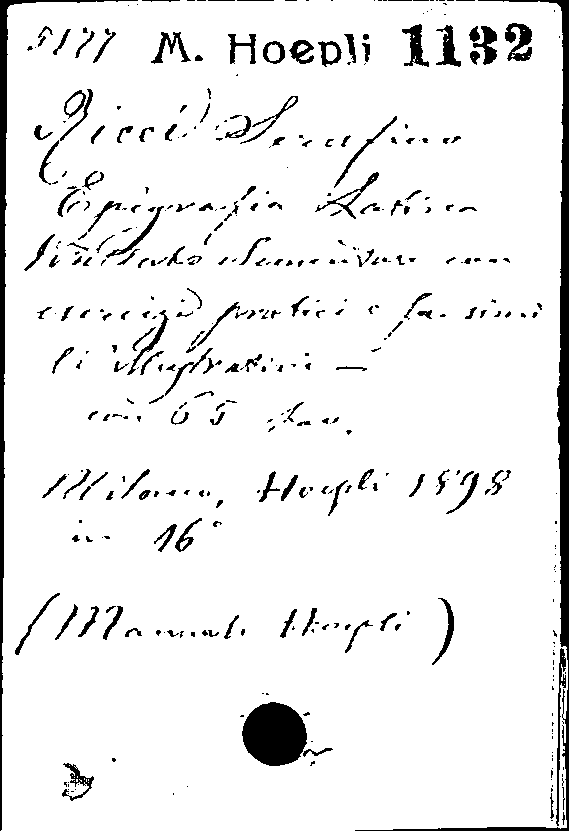 5177 M. Hoepli 1132
Ricci Serafino
Epigrafia Latina
Trattato elementare con
esercizi pratici e fac simi
li illustrativi —
con 65 tav.
Milano, Hoepli 1898
in 16°
(Manuali Hoepli)